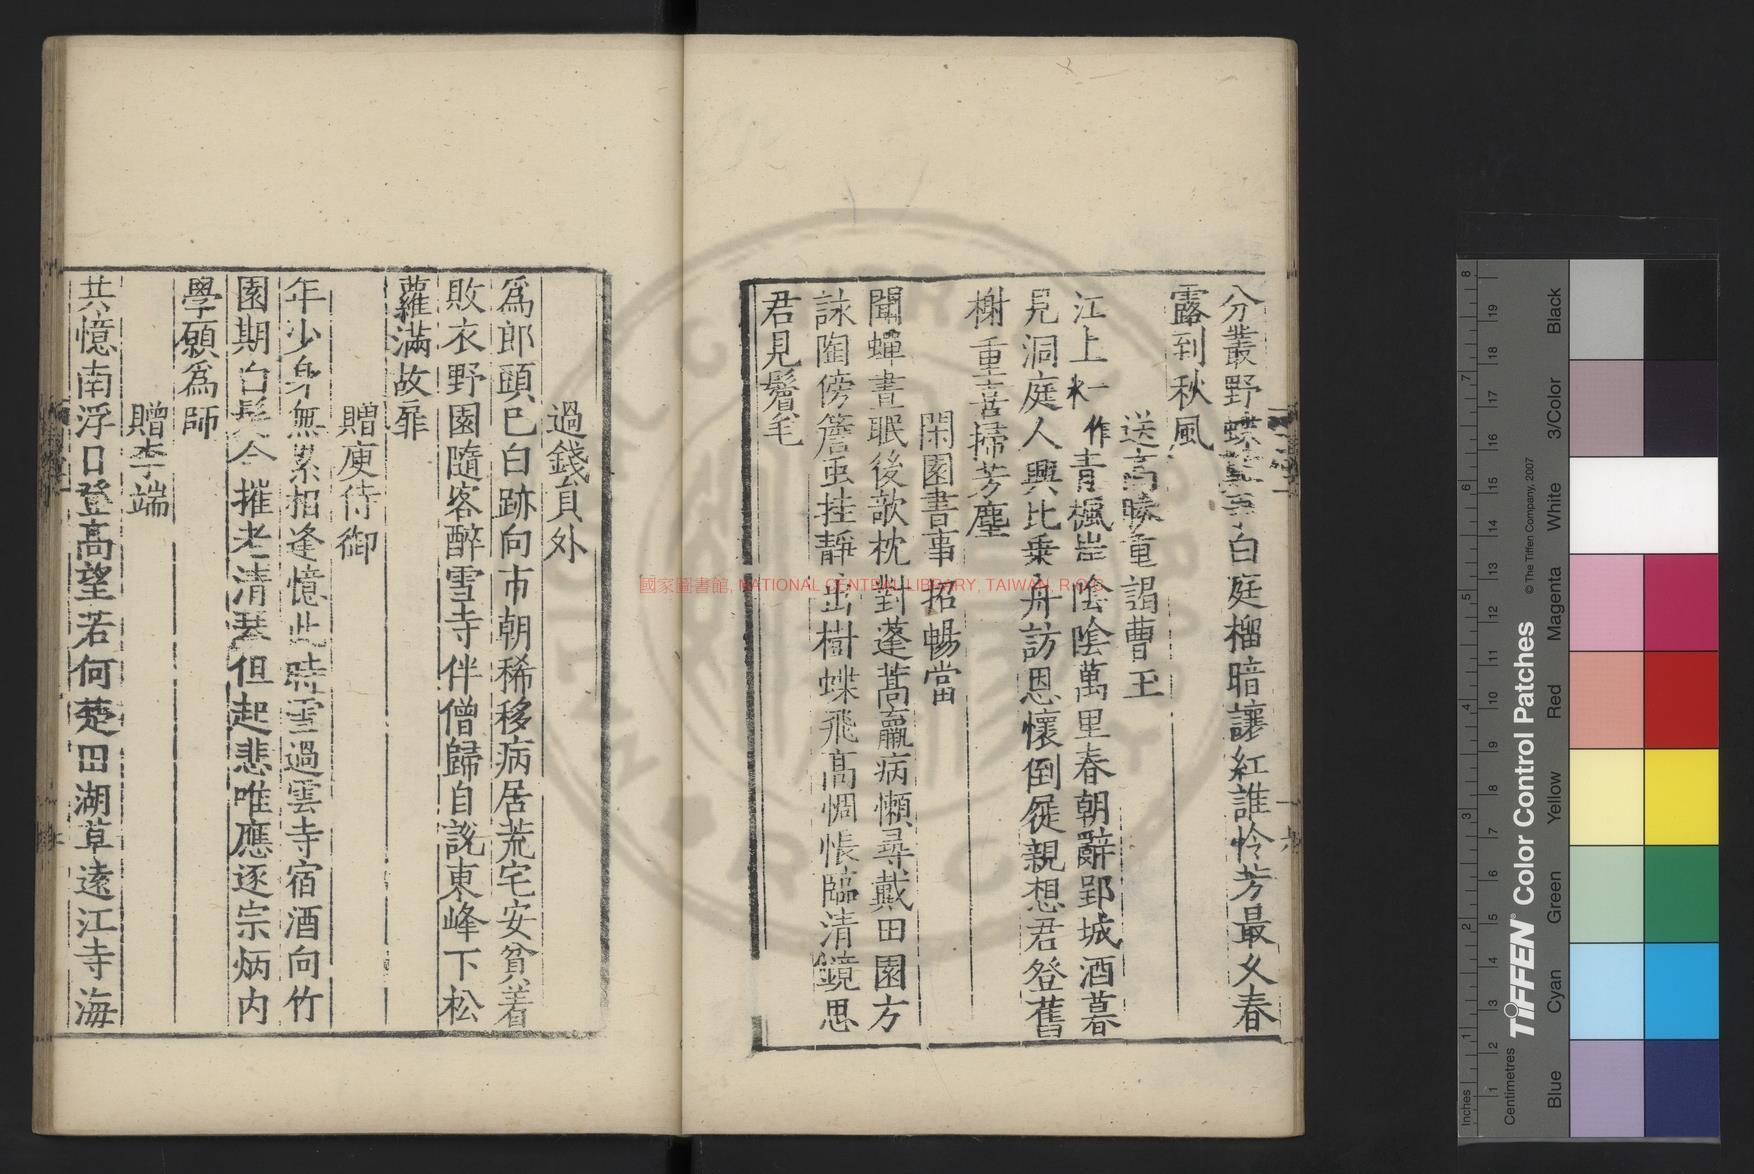 分叢野蝶白庭榴暗讓紅誰怜芳最久春
露到秋風
送高勝重謁曹王
江上一作水青楓岸陰陰萬里春朝辭郢城酒暮
見洞庭人興比乗舟訪恩懷倒屣親想君登舊
榭重喜掃芳塵
閑園書事招暢當
聞蟬晝眠後欹枕對蓬蒿羸病懶尋戴田園方
詠陶傍簷虫挂靜出樹蝶飛高惆悵臨清鏡思
君見鬢毛
過錢員外
爲郎頭已白跡向市朝稀移病居荒宅安貧着
敗衣野園隨客醉雪寺伴僧歸自說東峰下松
蘿滿故扉
贈庾侍御
年少身無累相逢憶此時雪過雲寺宿酒向竹
園期白髮今催老清琴但起悲唯應逐宗炳内
學願爲師
贈李端
共憶南浮日登高望若何楚田湖草遠江寺海
國家圖書館, NATIONAL CENTRAL LIBRARY, TAIWAN, R.O.C
Inches
Centimetres
TIFFEN® Color Control Patches
© The Tiffen Company, 2007
Blue
Cyan
Green
Yellow
Red
Magenta
White
3/Color
Black